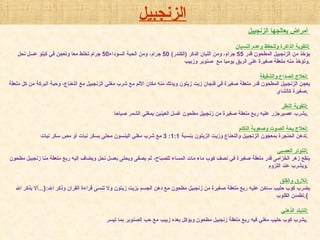 الزنجبيل
أمراض يعالجها الزنجبيل
:لتقوية الذاكرة وللحفظ وعدم النسيان
يؤخذ من الزنجبيل المطحون قدر 55 جرام، ومن اللبان الذكر (الكندر) 50 جرام، ومن الحبة السوداء50 جرام تخلط معا وتعجن فى كيلو عسل نحل
.وتؤخذ منه ملعقة صغيرة على الريق يوميا مع صنوبر وزبيب
:لعلاج الصداع والشقيقة
يعجن الزنجبيل المطحون قدر ملعقة صغيرة فى فنجان زيت زيتون ويدلك منه مكان الألم مع شرب مغلي الزنجبيل مع النعناع، وحبة البركة من كل ملعقة
.صغيرة كالشاي
:لتقوية النظر
.يشرب عصيرجزر عليه ربع ملعقة صغيرة من زنجبيل مطحون غسل العينين بمغلي الشمر صباحا
:لعلاج بحة الصوت وصعوبة التكلم
.تدهن الحنجرة بمعجون الزنجبيل والنعناع وزيت الزيتون بنسبة 1:1: 3 مع شرب مغلي الينسون محلى بسكر نبات أو مص سكر نبات
:للتوتر العصبي
ينقع زهر الخزامى قدر ملعقة صغيرة فى نصف كوب ماء مات المساء للصباح، ثم يصفى ويحلى بعسل نحل ويضاف إليه ربع ملعقة منا زنجبيل مطحون
.ويشرب عند اللزوم
:للأرق والقلق
يشرب كوب حليب ساخن عليه ربع ملعقة صغيرة من زنجبيل مطحون مع دهن الجسم بزيت زيتون ولا تنسي قراءة القران وذكر الله:(...ألا بذكر الله
(.تطمئن القلوب
:للتبلد الذهني
.يشرب كوب حليب مغلي فيه ربع ملعقة زنجبيل مطحون ويؤكل بعده زبيب مع حب الصنوبر بما تيسر